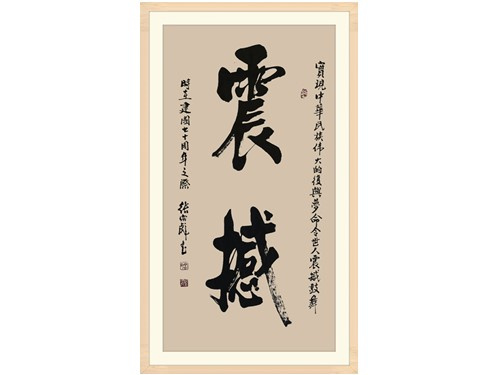 實現中華民族偉大的復興夢命令世人震撼鼓舞
震撼
時在建國七十周年之際